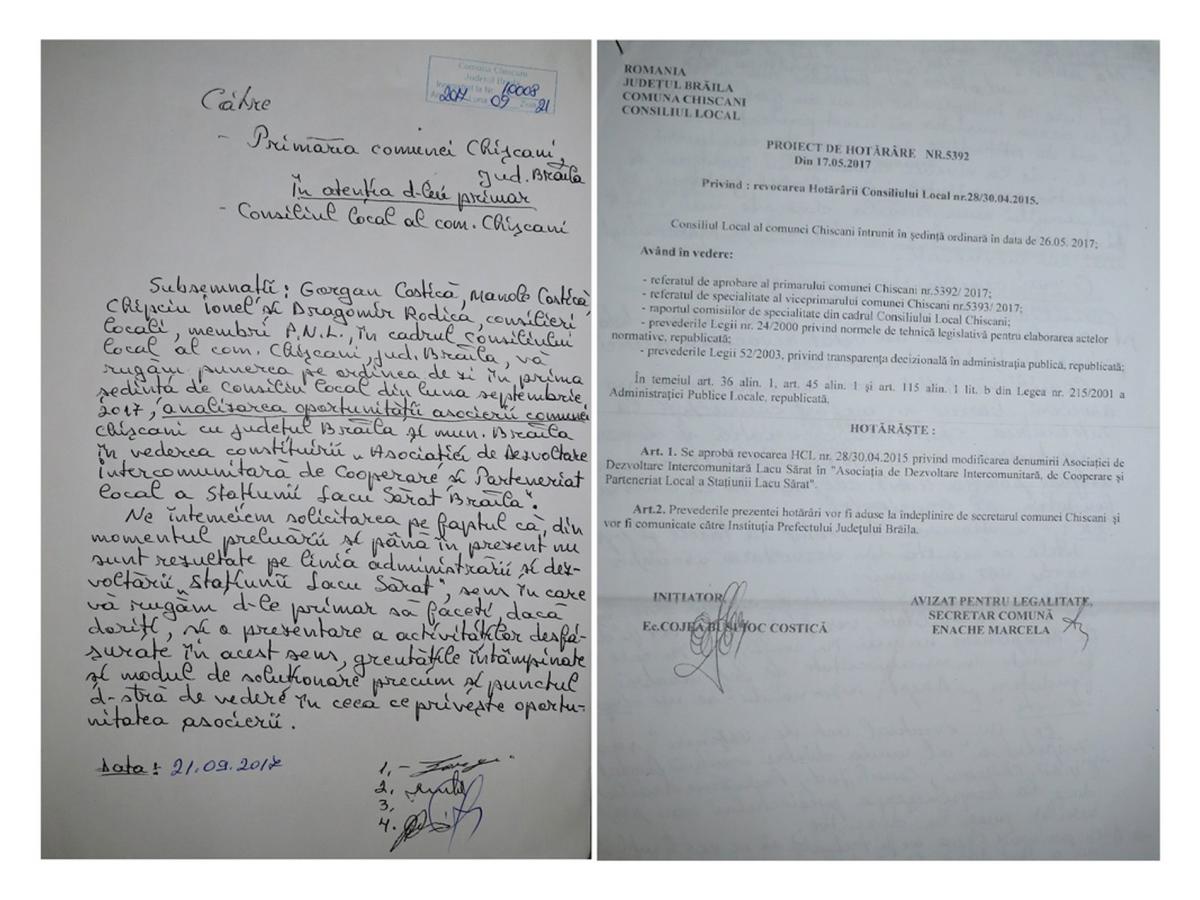 Comuna Chiscani
Județul Brăila
10008
2017 Luna 09 Ziua 21
Către
- Primăria comunei Chișcani,
Jud. Brăila
În atenția d-lui primar
- Consiliul local al com. Chișcani
Subsemnații: Gorgan Costică, Manole Costică,
Chipciu Ionel și Dragomir Rodica, consilieri
locali, membri A.N.L., în cadrul Consiliului
local al com. Chișcani, jud. Brăila, vă
rugăm punerea pe ordinea de zi în prima
ședință de Consiliu local din luna septembrie
2017, analizarea oportunității asocierii comunei
Chișcani cu județul Brăila și mun. Brăila
în vederea constituirii „Asociației de Dezvoltare
Intercomunitară de Cooperare și Parteneriat
local a Stațiunii Lacu Sărat Brăila".
Ne întemeiem solicitarea pe faptul că, din
momentul preluării și până în prezent nu
sunt rezultate pe linia administrării și dez-
voltării „Stațiunii Lacu Sărat", sens în care
vă rugăm d-le primar să faceți, dacă
doriți, și o prezentare a activităților desfă-
șurate în acest sens, greutățile întâmpinate
și modul de soluționare precum și punctul
d-stră de vedere în ceea ce privește oportu-
nitatea asocierii.
Data: 21.09.2017
1. -
2.
3.
4.
ROMANIA
JUDEȚUL BRĂILA
COMUNA CHISCANI
CONSILIUL LOCAL
PROIECT DE HOTĂRÂRE NR.5392
Din 17.05.2017
Privind : revocarea Hotărârii Consiliului Local nr.28/30.04.2015.
Consiliul Local al comunei Chiscani întrunit în ședință ordinară în data de 26.05. 2017;
Având în vedere:
- referatul de aprobare al primarului comunei Chiscani nr.5392/ 2017;
- referatul de specialitate al viceprimarului comunei Chiscani nr.5393/ 2017;
- raportul comisiilor de specialitate din cadrul Consiliului Local Chiscani;
- prevederile Legii nr. 24/2000 privind normele de tehnică legislativă pentru elaborarea actelor
normative, republicată;
- prevederile Legii 52/2003, privind transparența decizională în administrația publică, republicată;
În temeiul art. 36 alin. 1, art. 45 alin. 1 și art. 115 alin. 1 lit. b din Legea nr. 215/2001 a
Administrației Publice Locale, republicată,
HOTĂRĂȘTE :
Art. 1. Se aprobă revocarea HCL nr. 28/30.04.2015 privind modificarea denumirii Asociației de
Dezvoltare Intercomunitară Lacu Sărat în "Asociația de Dezvoltare Intercomunitară, de Cooperare și
Parteneriat Local a Stațiunii Lacu Sărat".
Art.2. Prevederile prezentei hotărâri vor fi aduse la îndeplinire de secretarul comunei Chiscani și
vor fi comunicate către Instituția Prefectului Județului Brăila.
INIȚIATOR,
Ec. COSTICĂ
AVIZAT PENTRU LEGALITATE,
SECRETAR COMUNĂ
ENACHE MARCELA